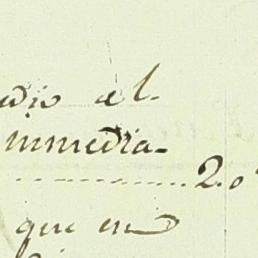 adio el
immedia-
.................. 2.o
que en